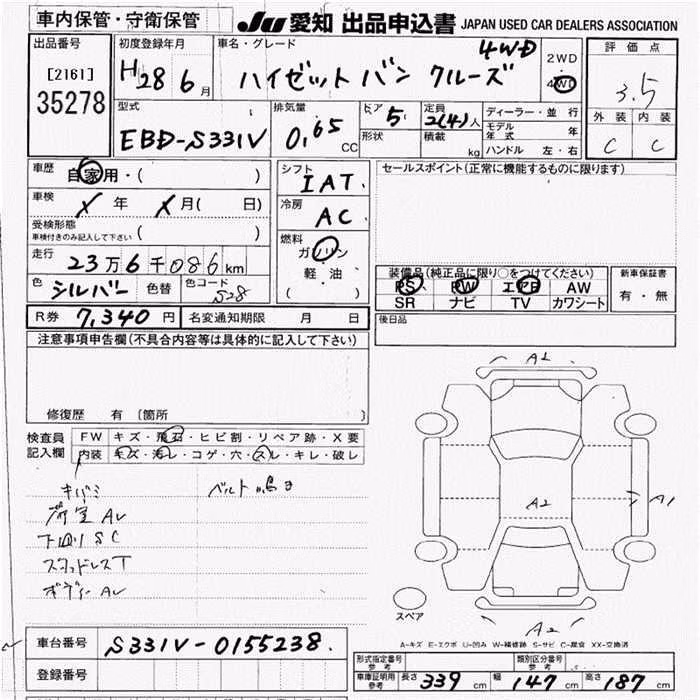 車内保管・守衛保管
JU 愛知 出品申込書 JAPAN USED CAR DEALERS ASSOCIATION
出品番号
[2161]
35278
初度登録年月
H28 6月
車名・グレード
4WD
ハイゼットバン クルーズ
2WD
4WD
評価点
3.5
外装 内装
C C
型式
EBD-S331V
排気量
0.65 CC
ドア 5
形状
定員 2(4)人
積載 kg
ディーラー・並行
モデル年式 年
ハンドル 左・右
車歴 自家用・( )
車検 X 年 X 月( 日)
受検形態
車検付きのみ記入して下さい ( )
走行 23万6千086km
色 シルバー 色替 色コード S28
R券 7,340 円 名変通知期限 月 日
シフト
IAT
冷房
AC
燃料
ガソリン
軽・油
( )
セールスポイント(正常に機能するものに限ります)
装備品(純正品に限り○をつけてください)
PS PW エアB AW
SR ナビ TV カワシート
新車保証書
有・無
後日品
注意事項申告欄(不具合内容等は具体的に記入して下さい)
修復歴 有 [箇所 ]
検査員記入欄
FW キズ・飛石・ヒビ割・リペア跡・X要
内装 キズ・汚レ・コゲ・穴・スレ・キレ・破レ
キバミ
ベルト鳴き
荷室 AU
下回り SC
スタッドレスT
ボディー AU
A2
A2
A1
A2
スペア
A-キズ E-エクボ U-凹み W-補修跡 S-サビ C-腐食 XX-交換済
車台番号 S331V-0155238
登録番号
型式指定番号 参考
類別区分番号 参考
車庫証明用 参考 長さ 339 cm 幅 147 cm 高さ 187 cm